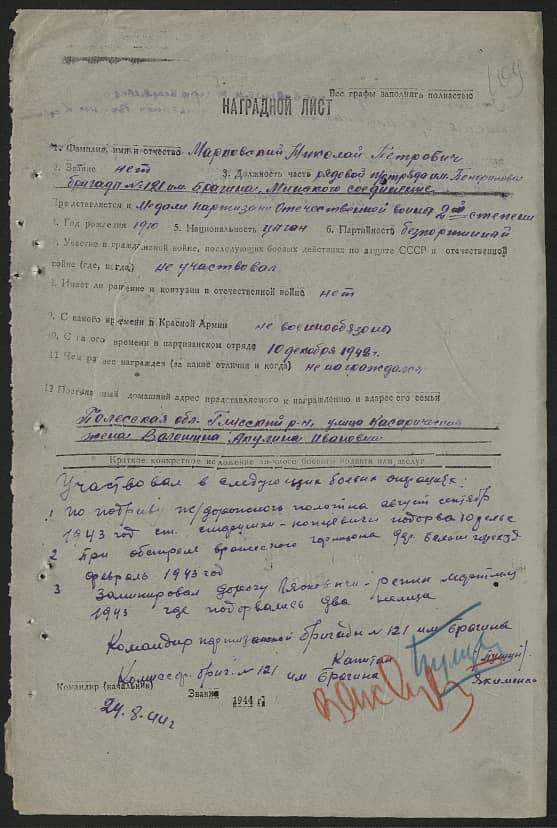 Все графы заполнять полностью
НАГРАДНОЙ ЛИСТ
1. Фамилия, имя и отчество Марковский Николай Петрович
2. Звание нет 3. Должность часть рядовой п/отряда им.
бригады №121 им. Брагина, Минского соединение
Представляется к Медали партизану Отечественной войны 2ой степени
4. Год рождения 1910 5. Национальность цыган 6. Партийность безпортиный
7. Участие в гражданской войне, последующих боевых действиях по защите СССР и отечественной
войне (где, когда) не участвовал
8. Имеет ли ранение и контузии в отечественной войне нет
9. С какого времени в Красной Армии не военнообязаны
10. С какого времени в партизанском отряде 10 декабря 1942 г.
11 Чем ранее награжден (за какие отличия и когда) не награждался
12 Постоянный домашний адрес представляемого к награждению и адрес его семьи
Полесская обл. Глусский р-н, улица
жена Акулина Ивановна
Краткое конкретное изложение личного боевого подвига или заслуг
Участвовал в следующих боевых операциях:
1 по подриву ж/дорожного полотна август сентябр
1943 год ст. подорвал рельс
2 При обстреле вражеского гарнизона дер.
февраль 1943 год
3 Заминировал дорогу
1943 где подорвались два немца
Командир партизанской бригады №121 им Брагина
Капитан
Комиссар бриг. №121 им Брагина Якименко
Командир (начальник)
Звание 1944 г.
24.8.44г